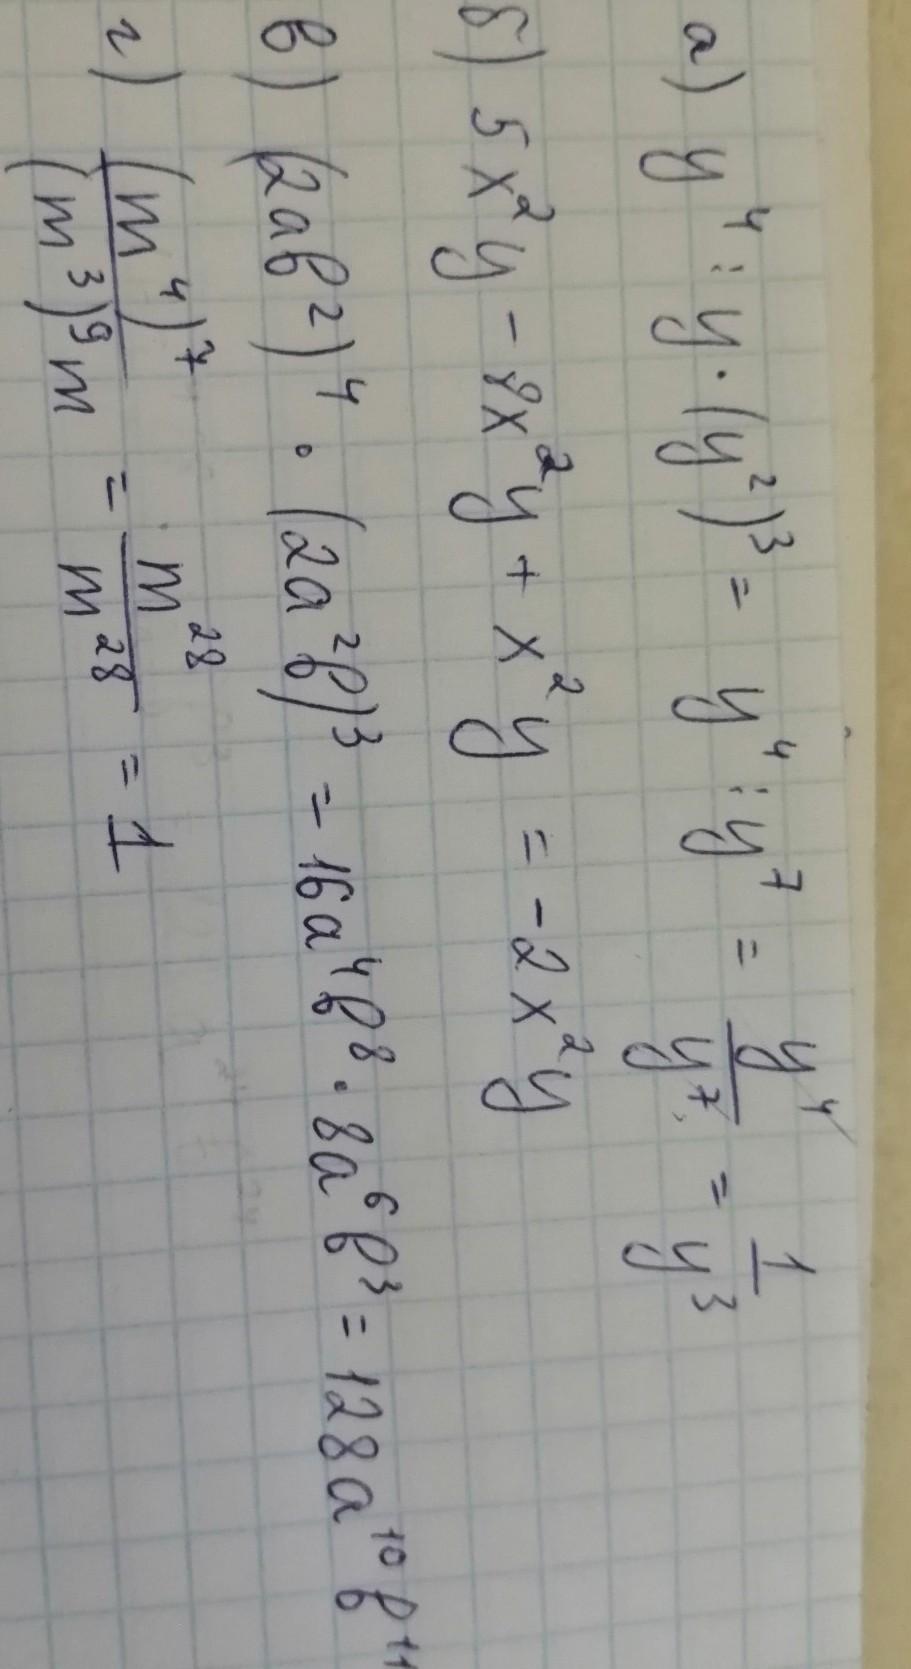 а) y⁴ : y · (y²)³ = y⁴ : y⁷ = y⁴/y⁷ = 1/y³
б) 5x²y - 8x²y + x²y = -2x²y
в) (2ab²)⁴ · (2a²b)³ = 16a⁴b⁸ · 8a⁶b³ = 128a¹⁰b¹¹
г) (m⁴)⁷/(m³)⁹m = m²⁸/m²⁸ = 1